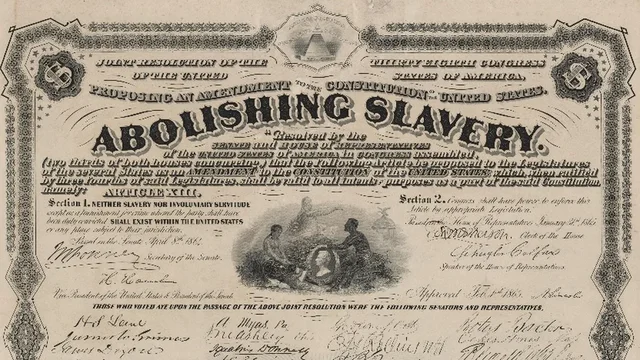 JOINT RESOLUTION OF THE THIRTY EIGHTH CONGRESS
OF THE UNITED STATES OF AMERICA,
PROPOSING AN AMENDMENT TO THE CONSTITUTION OF THE UNITED STATES.
ABOLISHING SLAVERY.
Resolved by the
SENATE and HOUSE of REPRESENTATIVES
of the UNITED STATES of AMERICA IN CONGRESS assembled
(two thirds of both houses concurring) that the following article be proposed to the Legislatures
of the several States as an AMENDMENT to the CONSTITUTION of the UNITED STATES which, when ratified
by three fourths of said Legislatures, shall be valid to all intents & purposes as a part of the said Constitution
namely: ARTICLE XIII.
Section 1. NEITHER SLAVERY NOR INVOLUNTARY SERVITUDE
except as a punishment for crime whereof the party shall have
been duly convicted SHALL EXIST WITHIN THE UNITED STATES
or any place subject to their jurisdiction.
Passed in the Senate April 8th 1864
Secretary of the Senate.
H. Hamlin
Vice President of the United States & President of the Senate.
Section 2. Congress shall have power to enforce this
Article by appropriate Legislation.
House of Representatives January 31st 1865
Clerk of the House
Schuyler Colfax
Speaker of the House of Representatives.
Approved Feb. 1st 1865. A. Lincoln
THOSE WHO VOTED AYE UPON THE PASSAGE OF THE ABOVE JOINT RESOLUTION WERE THE FOLLOWING SENATORS AND REPRESENTATIVES,
James W. Grimes
Ignatius Donnelly